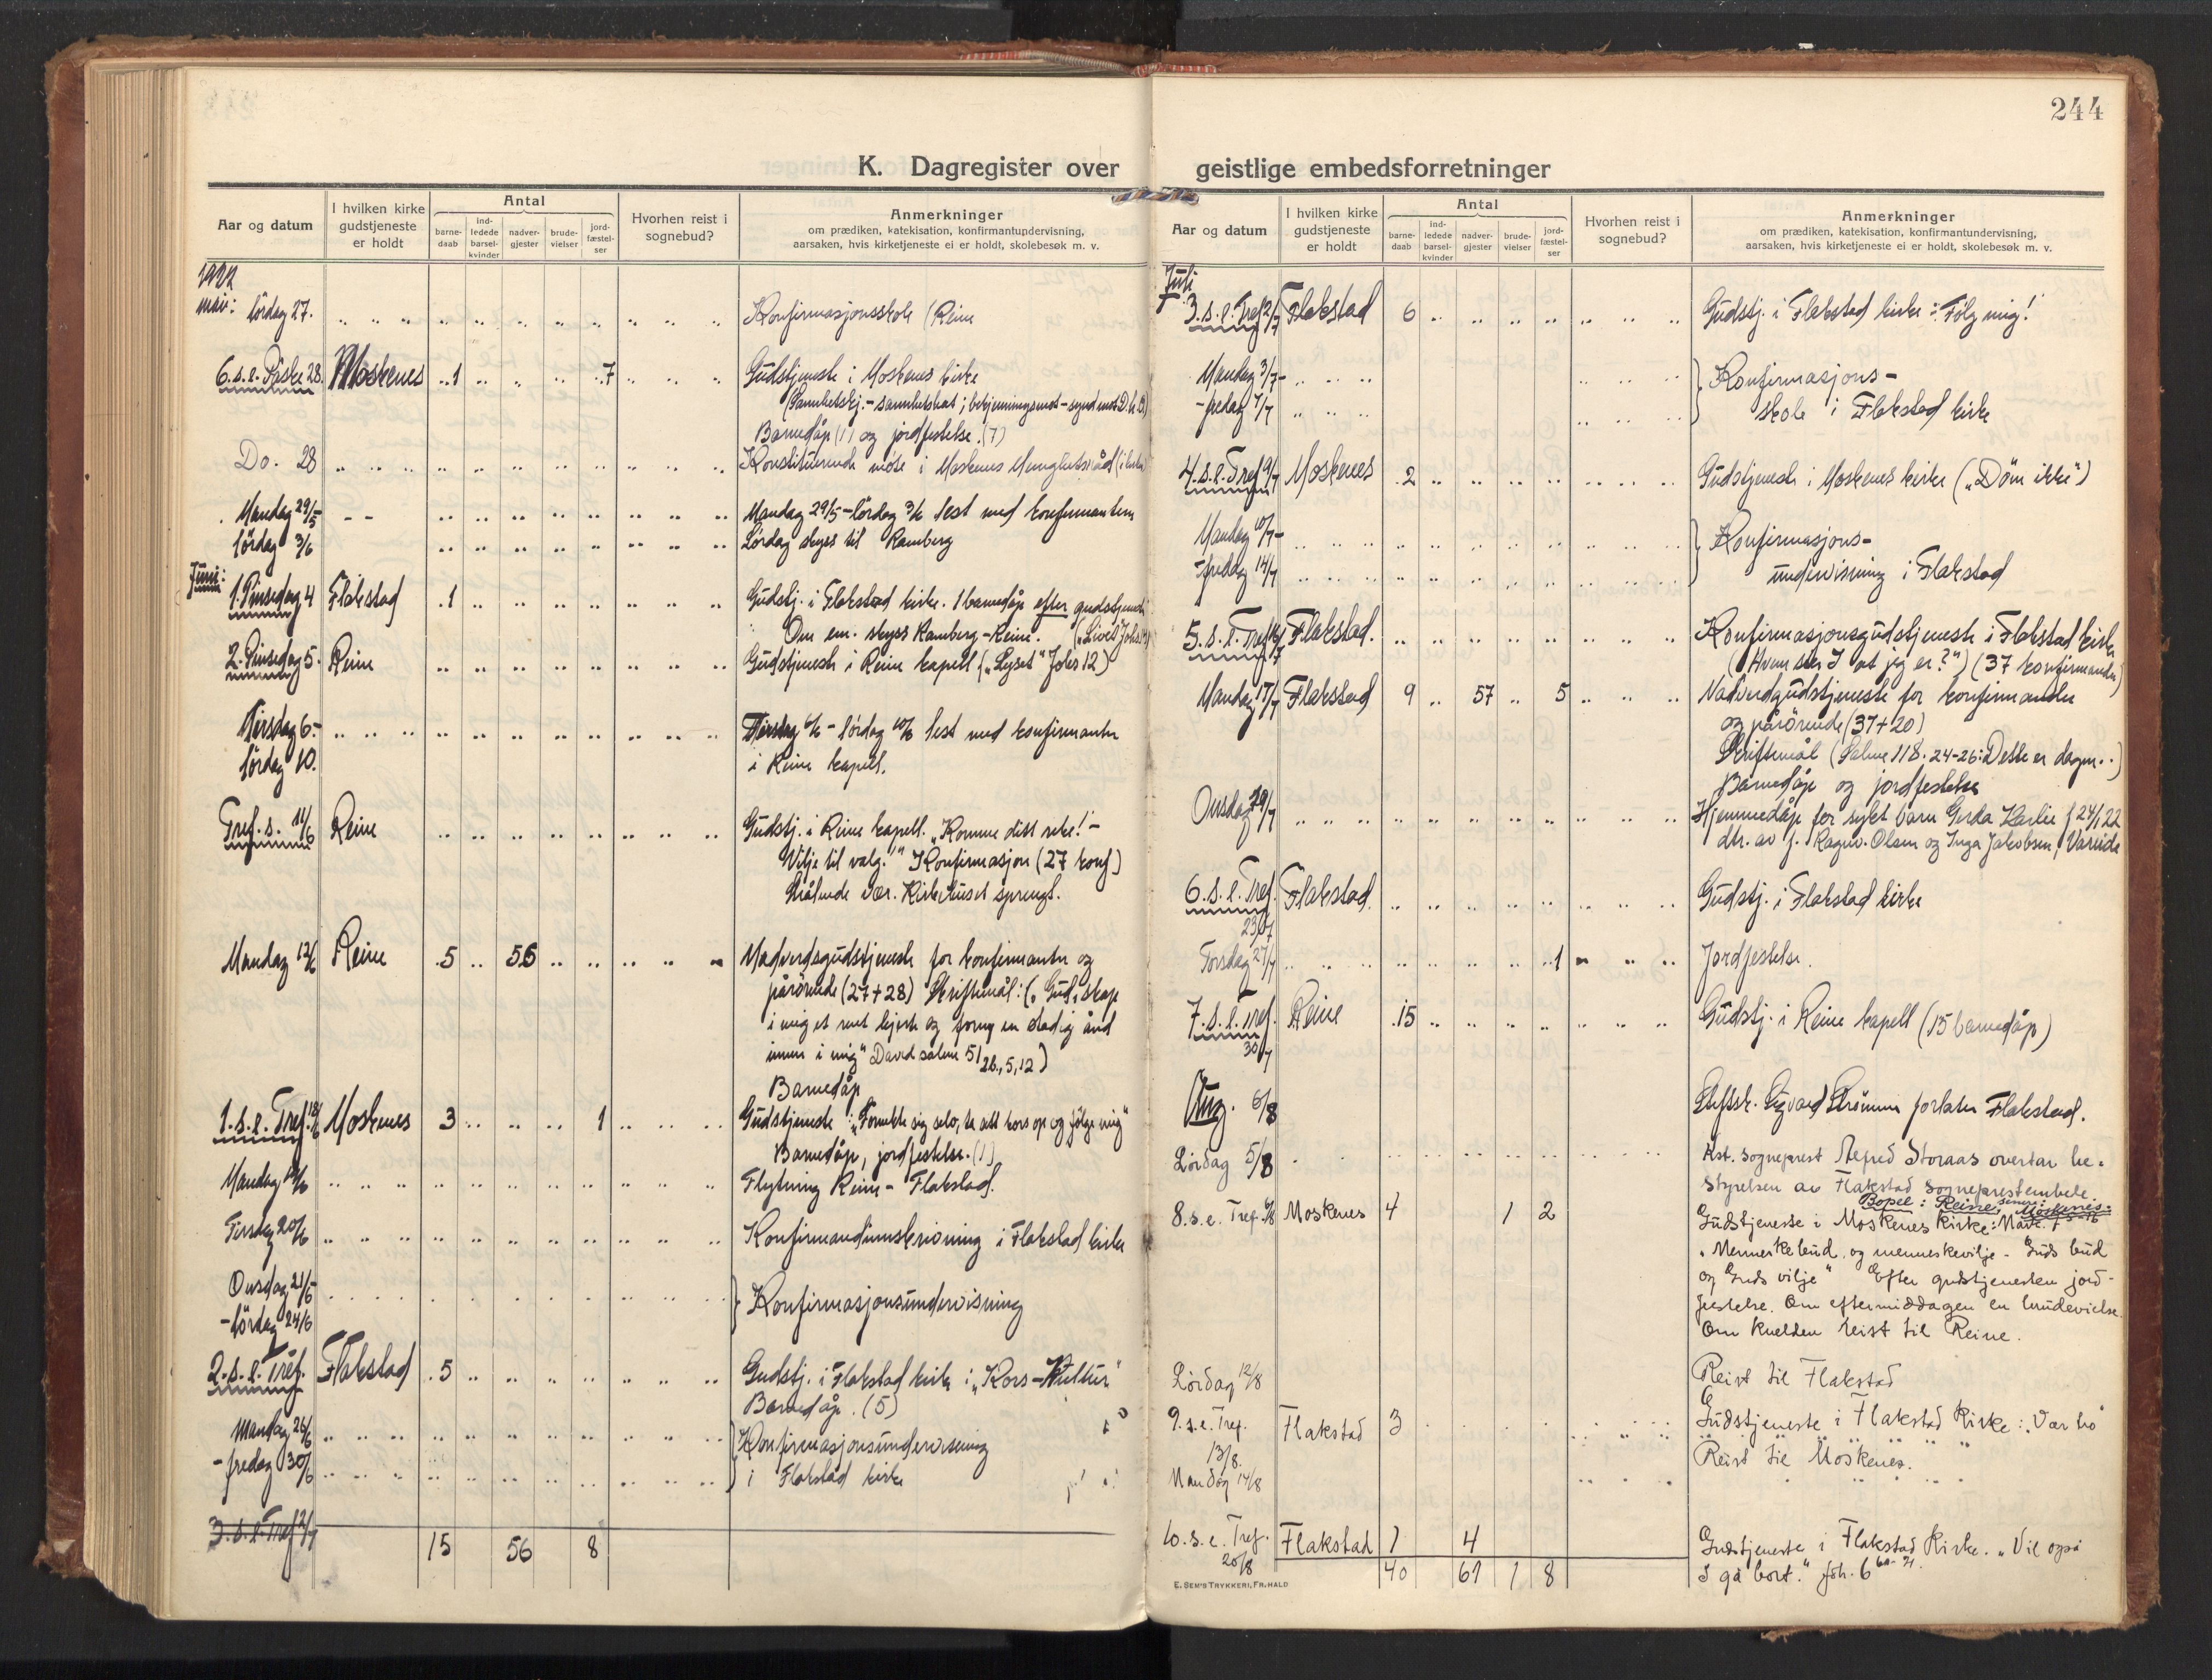 244
K. Dagregister over
Aar og datum
I hvilken kirke gudstjeneste er holdt
Antal
barne-daab
ind-ledede barsel-kvinder
nadver-gjester
brude-vielser
jord-fæstel-ser
Hvorhen reist i sognebud?
Anmerkninger
om prædiken, katekisation, konfirmantundervisning,
aarsaken, hvis kirketjeneste ei er holdt, skolebesøk m. v.
1922
mai: lördag 27. Konfirmasjonsskole (Reine
6. s. e. Påske 28. Moskenes 1 7 Gudstjeneste i Moskenes kirke
Barnedåp (1) og jordfestelse. (7)
Do. 28 Konstituerende möte i Moskenes Menighetsråd
Mandag 29/5 - Mandag 29/5 - lördag 3/6 lest med konfirmantene
lördag 3/6 Lördag skyss til Ramberg
Juni:
1. Pinsedag 4 Flakstad 1 Gudstj. i Flakstad kirke. 1 barnedåp efter gudstjeneste
Om em. skyss Ramberg - Reine.
2. Pinsedag 5. Reine Gudstjeneste i Reine kapell („Lyset" Johs 12)
Tirsdag 6.- Tirsdag 6/6 - lördag 10/6 lest med konfirmanter
lördag 10. i Reine kapell.
Tref. s. 11/6 Reine Gudstj. i Reine kapell. „Komme ditt rike! -
Vilje til valg." Konfirmasjon (27 konf)
Strålende vær. Kirkehuset sprengt.
Mandag 12/6 Reine 5 56 Nadverdsgudstjeneste for konfirmanter og
pårörende (27+28) Skriftemål: („Gud, skap
i mig et rent hjerte og forny en stadig ånd
innen i mig" Davids salme 51
Barnedåp
1. s. e. Tref. 18/6 Moskenes 3 1 Gudstjeneste: „Fornekte sig selv, ta sitt kors op og fölge mig"
Barnedåp, jordfestelse. (1)
Mandag 19/6 Flytning Reine - Flakstad.
Tirsdag 20/6 Konfirmandinnskrivning i Flakstad kirke
Onsdag 21/6
- lördag 24/6 Konfirmasjonsundervisning
2. s. e. Tref. Flakstad 5 Gudstj. i Flakstad kirke: „Kors - Kultur"
Barnedåp. (5)
Mandag 26/6 Konfirmasjonsundervisning
- fredag 30/6 i Flakstad kirke
3. s. e. Tref 2/7
15 56 8
geistlige embedsforretninger
Aar og datum
I hvilken kirke gudstjeneste er holdt
Antal
barne-daab
ind-ledede barsel-kvinder
nadver-gjester
brude-vielser
jord-fæstel-ser
Hvorhen reist i sognebud?
Anmerkninger
om prædiken, katekisation, konfirmantundervisning,
aarsaken, hvis kirketjeneste ei er holdt, skolebesøk m. v.
Juli
3. s. e. Tref 2/7 Flakstad 6 Gudstj. i Flakstad kirke: „Fölg mig!
Mandag 3/7 - Konfirmasjons-
- fredag 7/7 skole i Flakstad kirke
4. s. e. Tref 9/7 Moskenes 2 Gudstjeneste i Moskenes kirke („Döm ikke")
Mandag 10/7 - Konfirmasjons-
- fredag 14/7 undervisning i Flakstad
5. s. e. Tref 16/7 Flakstad. Konfirmasjonsgudstjeneste i Flakstad kirke
(„Hvem sier I at jeg er?") (37 konfirmander)
Mandag 17/7 Flakstad 9 57 5 Nadverdgudstjeneste for konfirmander
og pårörende (37+20)
Skriftemål (Salme 118. 24-26: Dette er dagen..)
Barnedåp og jordfestelse
Onsdag 19/7 Hjemmedåp for sykt barn Gerda Karlie f 24/1 22
dtr. av f. Ragnv. Olsen og Inga Jakobsen, Vareide
6. s. e. Tref. Flakstad. Gudstj. i Flakstad kirke
23/7
Torsdag 27/7 1 Jordfestelse.
7. s. e. Tref. Reine 15 Gudstj. i Reine kapell (15 barnedåp)
30/7
Aug. 6/8 Stiftsk. Sigvard Strömme forlater Flakstad.
Lördag 5/8 Kst. sogneprest Alfred Storaas overtar be-
styrelsen av Flakstad sogneprestembede.
Bopel: Reine, senere Moskenes.
8. s. e. Tref. 6/8 Moskenes 4 1 2 Gudstjeneste i Moskenes kirke: Mark. 7
„Menneskebud og menneskevilje - Guds bud
og Guds vilje" Efter gudstjenesten jord-
festelse. Om eftermiddagen en brudevielse.
Om kvelden reist til Reine.
Lördag 12/8 Reist til Flakstad
9. s. e. Tref. Flakstad 3 Gudstjeneste i Flakstad Kirke: „Vær tro"
13/8.
Mandag 14/8 Reist til Moskenes.
10. s. e. Tref. Flakstad 1 4 Gudstjeneste i Flakstad Kirke. „Vil også
20/8 I gå bort." Joh. 6
40 61 1 8
E. SEM'S TRYKKERI, FR.HALD